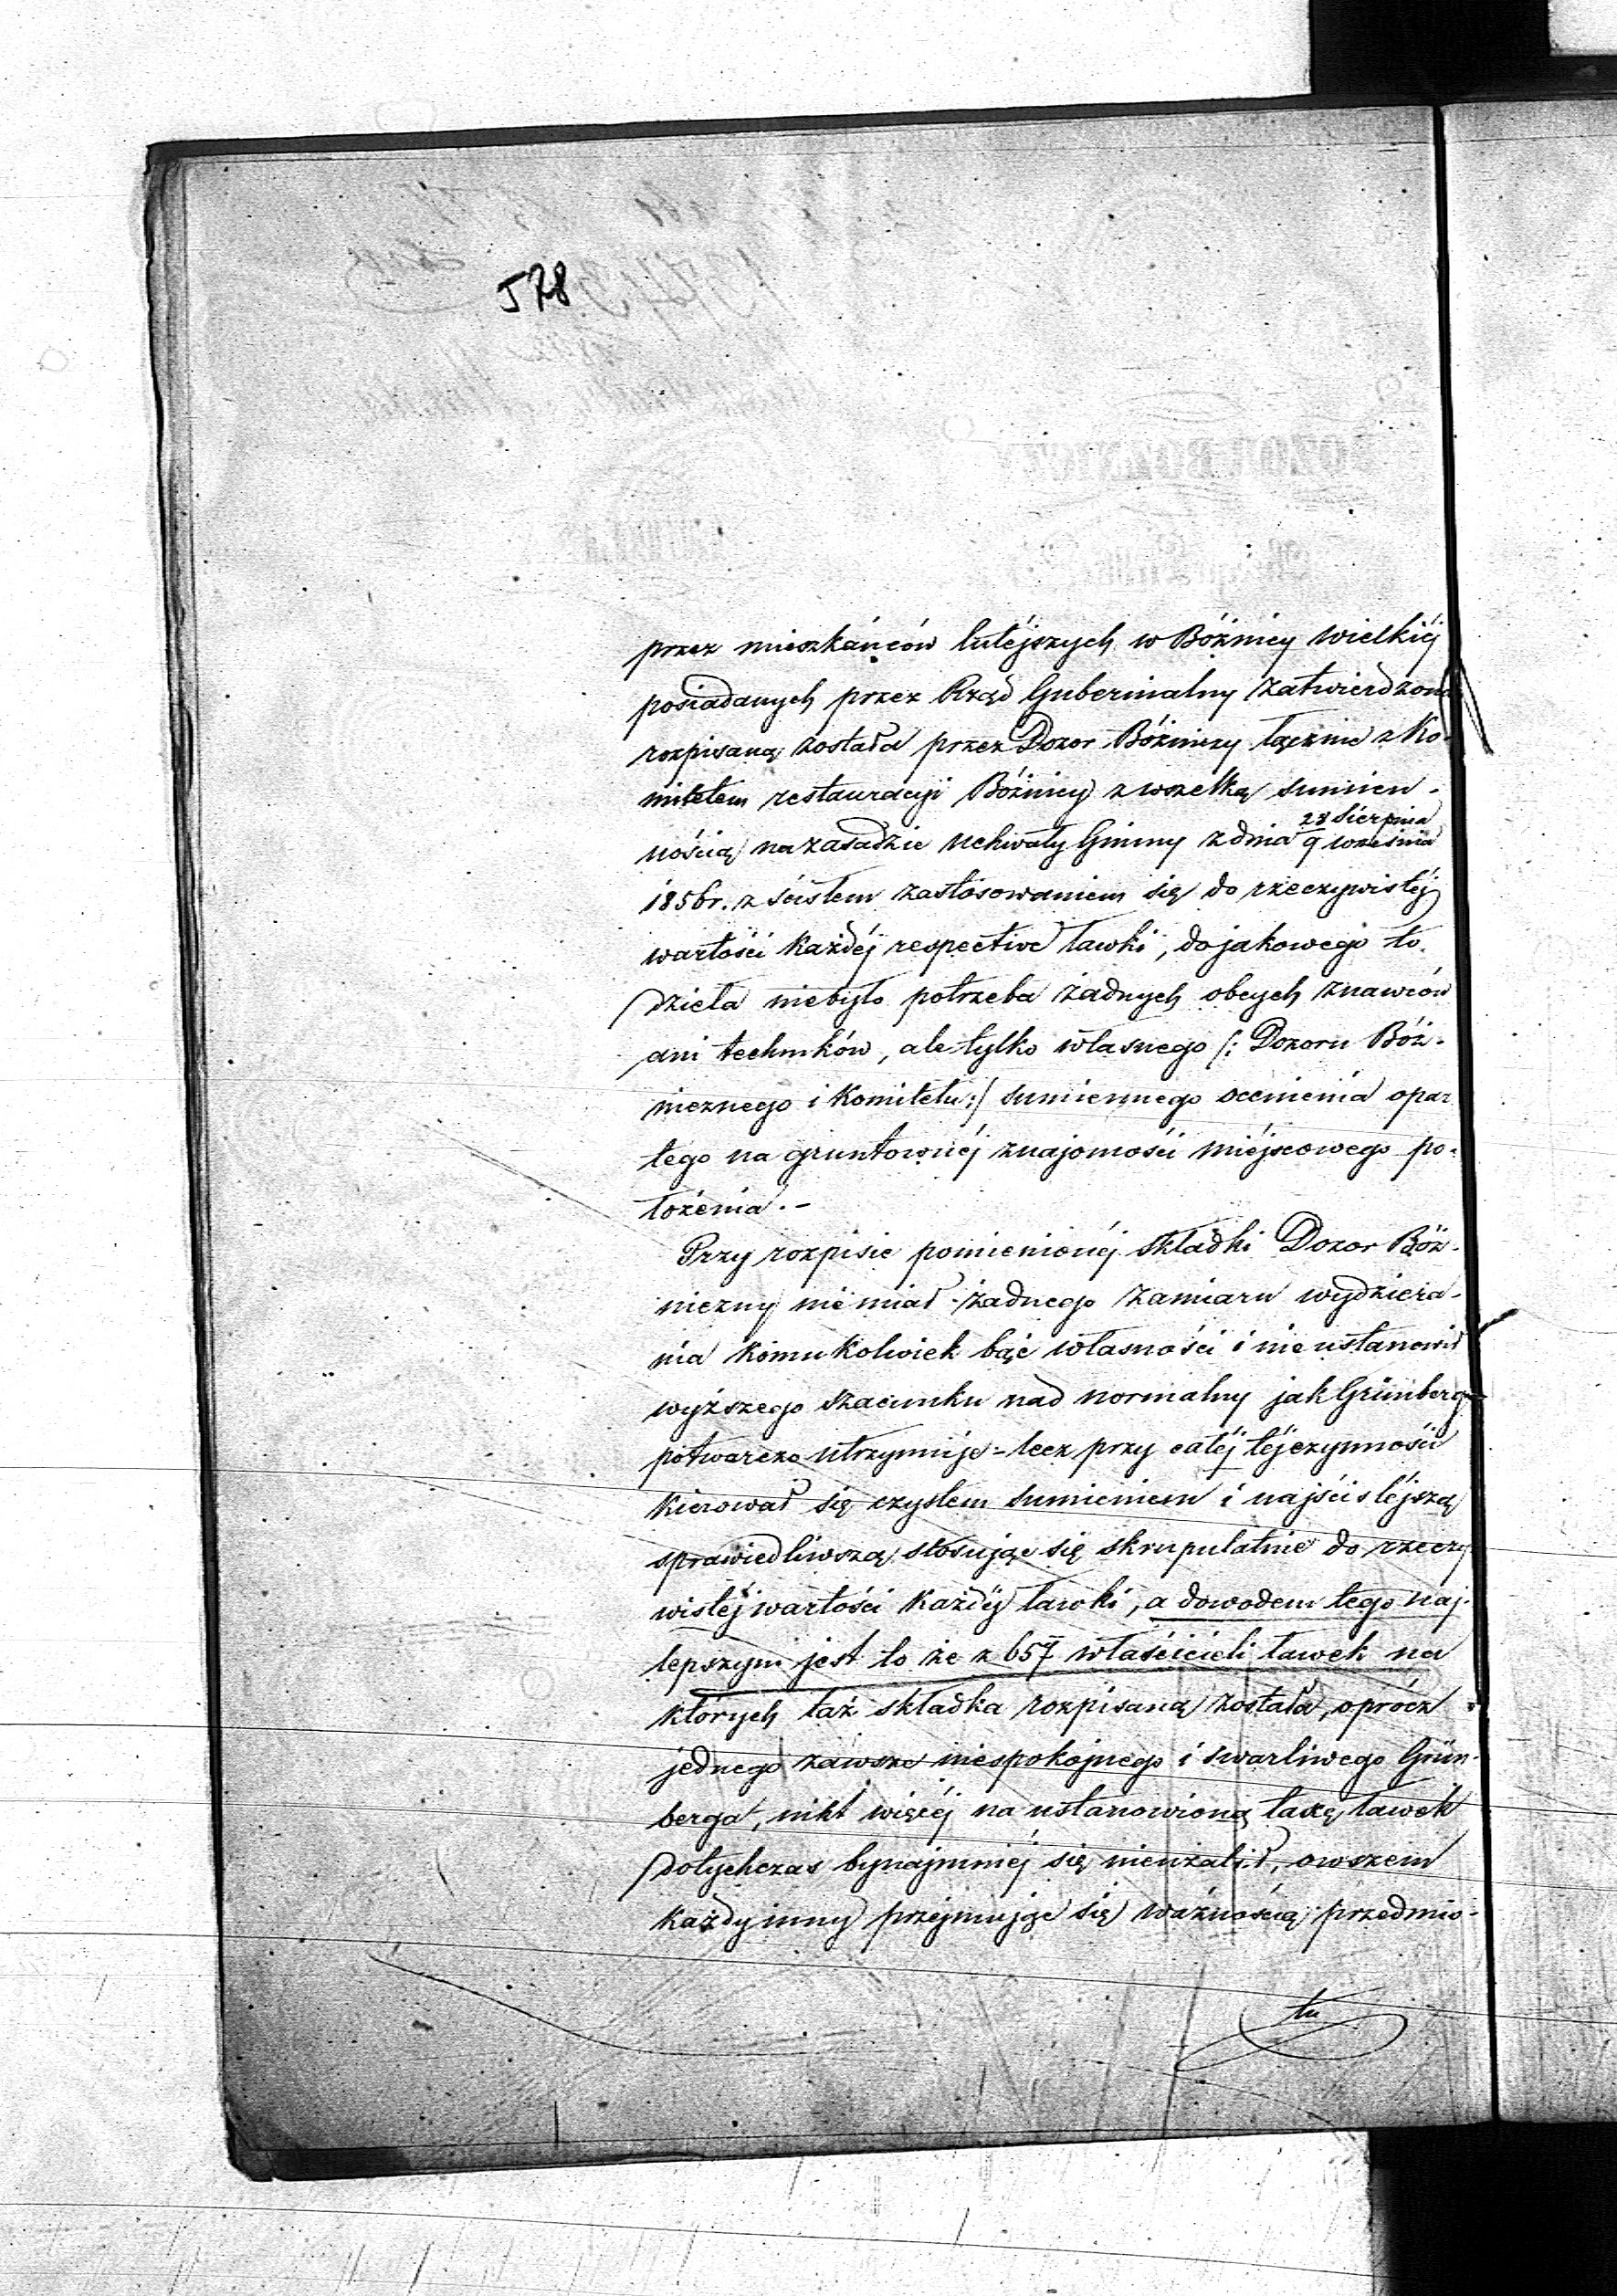 578
przez mieszkańców tutéjszych w Bóżnicy Wielkiéj
posiadanych przez Rząd Gubernialny zatwierdzona
rozpisaną została przez Dozor Bóżniczy łącznie z Ko-
mitetem restauracyi Bóżnicy z wszelką sumien-
nością na zasadzie uchwały Gminy z dnia 28 Sierpnia / 9 września
1856r. z ścisłem zastósowaniem się do rzeczywistéj
wartości każdéj respective ławki, do jakowego to
dzieła niebyło potrzeba żadnych obcych znawców
ani techników, ale tylko własnego /: Dozoru Bóż-
nicznego i Komitetu :/ sumiennego ocenienia opar
tego na gruntownéj znajomości miéjscowego po-
łożenia. -
Przy rozpisie pomienionéj składki Dozor Bóż-
niczny nie miał żadnego zamiaru wydziera-
nia komukolwiek bąć własności i nie ustanowił
wyższego szacunku nad normalny jak Grünberg
potwarczo utrzymuje - lecz przy całéj téj czynności
kierował się czystem sumieniem i najściśléjszą
sprawiedliwszą stosując się skrupulatnie do rzeczy
wistéj wartości każdéj ławki, a dowodem tego naj-
lepszym jest to że z 657 właścicieli ławek na
których taż składka rozpisaną została, oprócz
jednego zawsze niespokojnego i swarliwego Grün-
berga, nikt więcéj na ustanowioną taxę ławek
dotychczas bynajmniéj się nieużalił, owszem
każdy inny przejmując się ważnością przedmio-
tu